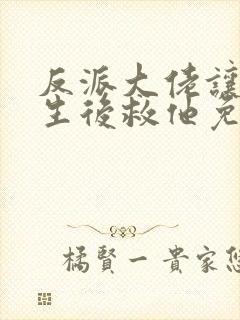 反派大佬讓
生後救他免
橘賢一貴家悠